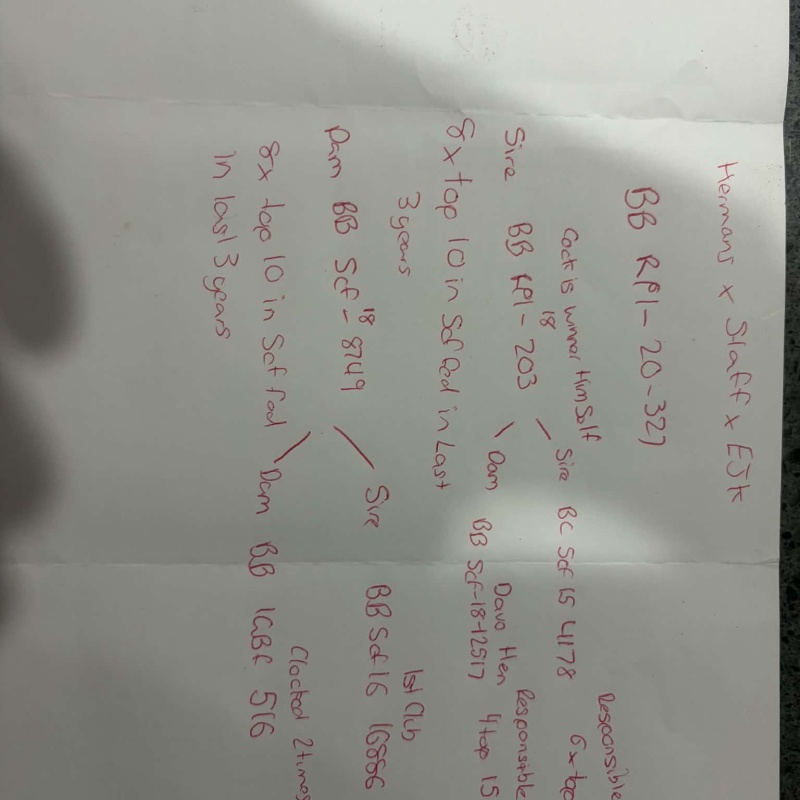 Hermans x Staff x EJK
BB RPI-20-327
Cock is winner Himself
Sire BB RPI-18 203
8 x top 10 in Scf fed in Last
3 years
Sire BC Scf 15 4178
Responsible
6 x top
Dam BB Scf-18-12517
Davo Hen Responsible
4 top 15
Dam BB Scf-18 8749
8x top 10 in Scf fed
in last 3 years
Sire BB Scf 16 16886
1st Club
Dam BB IGBF 516
Clocked 2 times